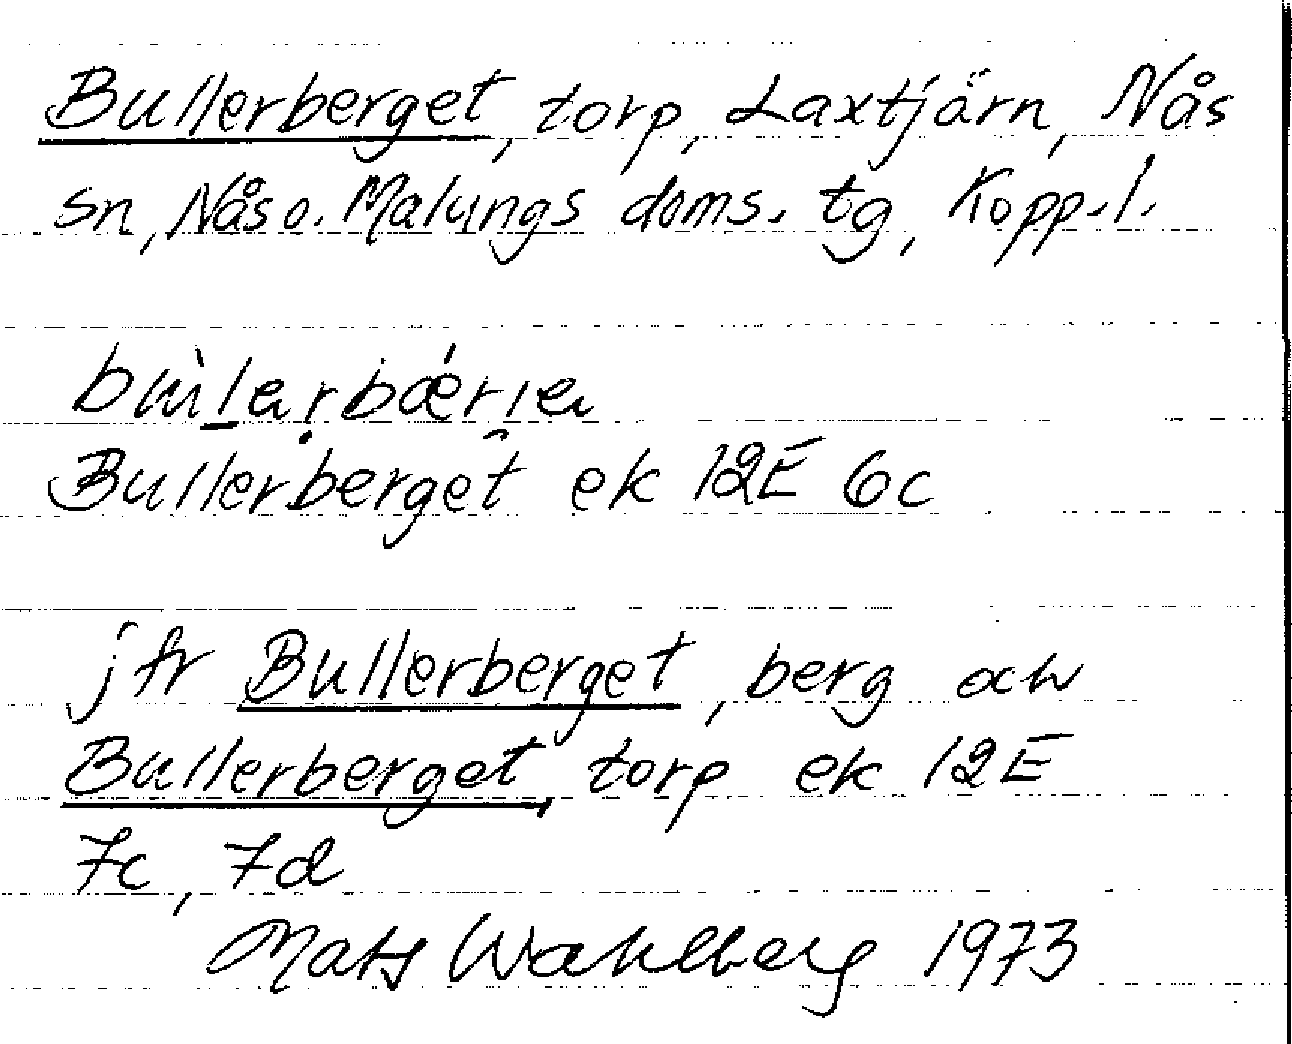 Bullerberget, torp, Laxtjärn, Nås
sn, Nås o. Malungs doms. tg, Kopp. l.
Bullerberget ek 12E 6c
jfr Bullerberget, berg och
Bullerberget, torp ek 12E
7c, 7d
Mats Wahlberg 1973